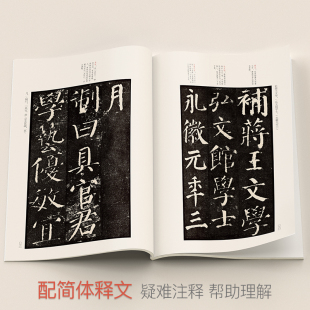 補蔣王文學
弘文館學士
永徽元年三
月
制曰具官君
學藝優敏宜
配简体释文 疑难注释 帮助理解